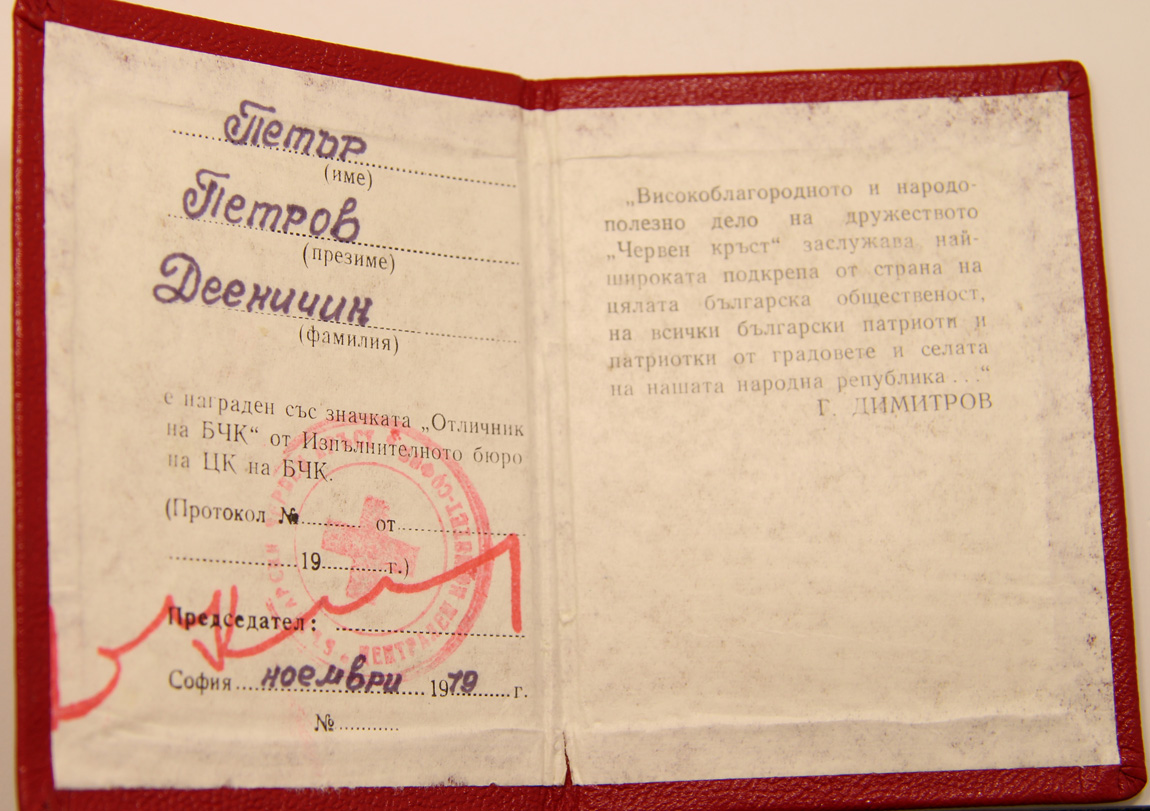 Петър
(име)
Петров
(презиме)
Деничин
(фамилия)
е награден със значката „Отличник
на БЧК“ от Изпълнителното бюро
на ЦК на БЧК.
(Протокол №........ от................
................19..........г.)
Председател: ........................
София ноември 1979 г.
№..........
„Високоблагородното и народо-
полезно дело на дружеството
„Червен кръст“ заслужава най-
широката подкрепа от страна на
цялата българска общественост,
на всички български патриоти и
патриотки от градовете и селата
на нашата народна република...“
Г. ДИМИТРОВ